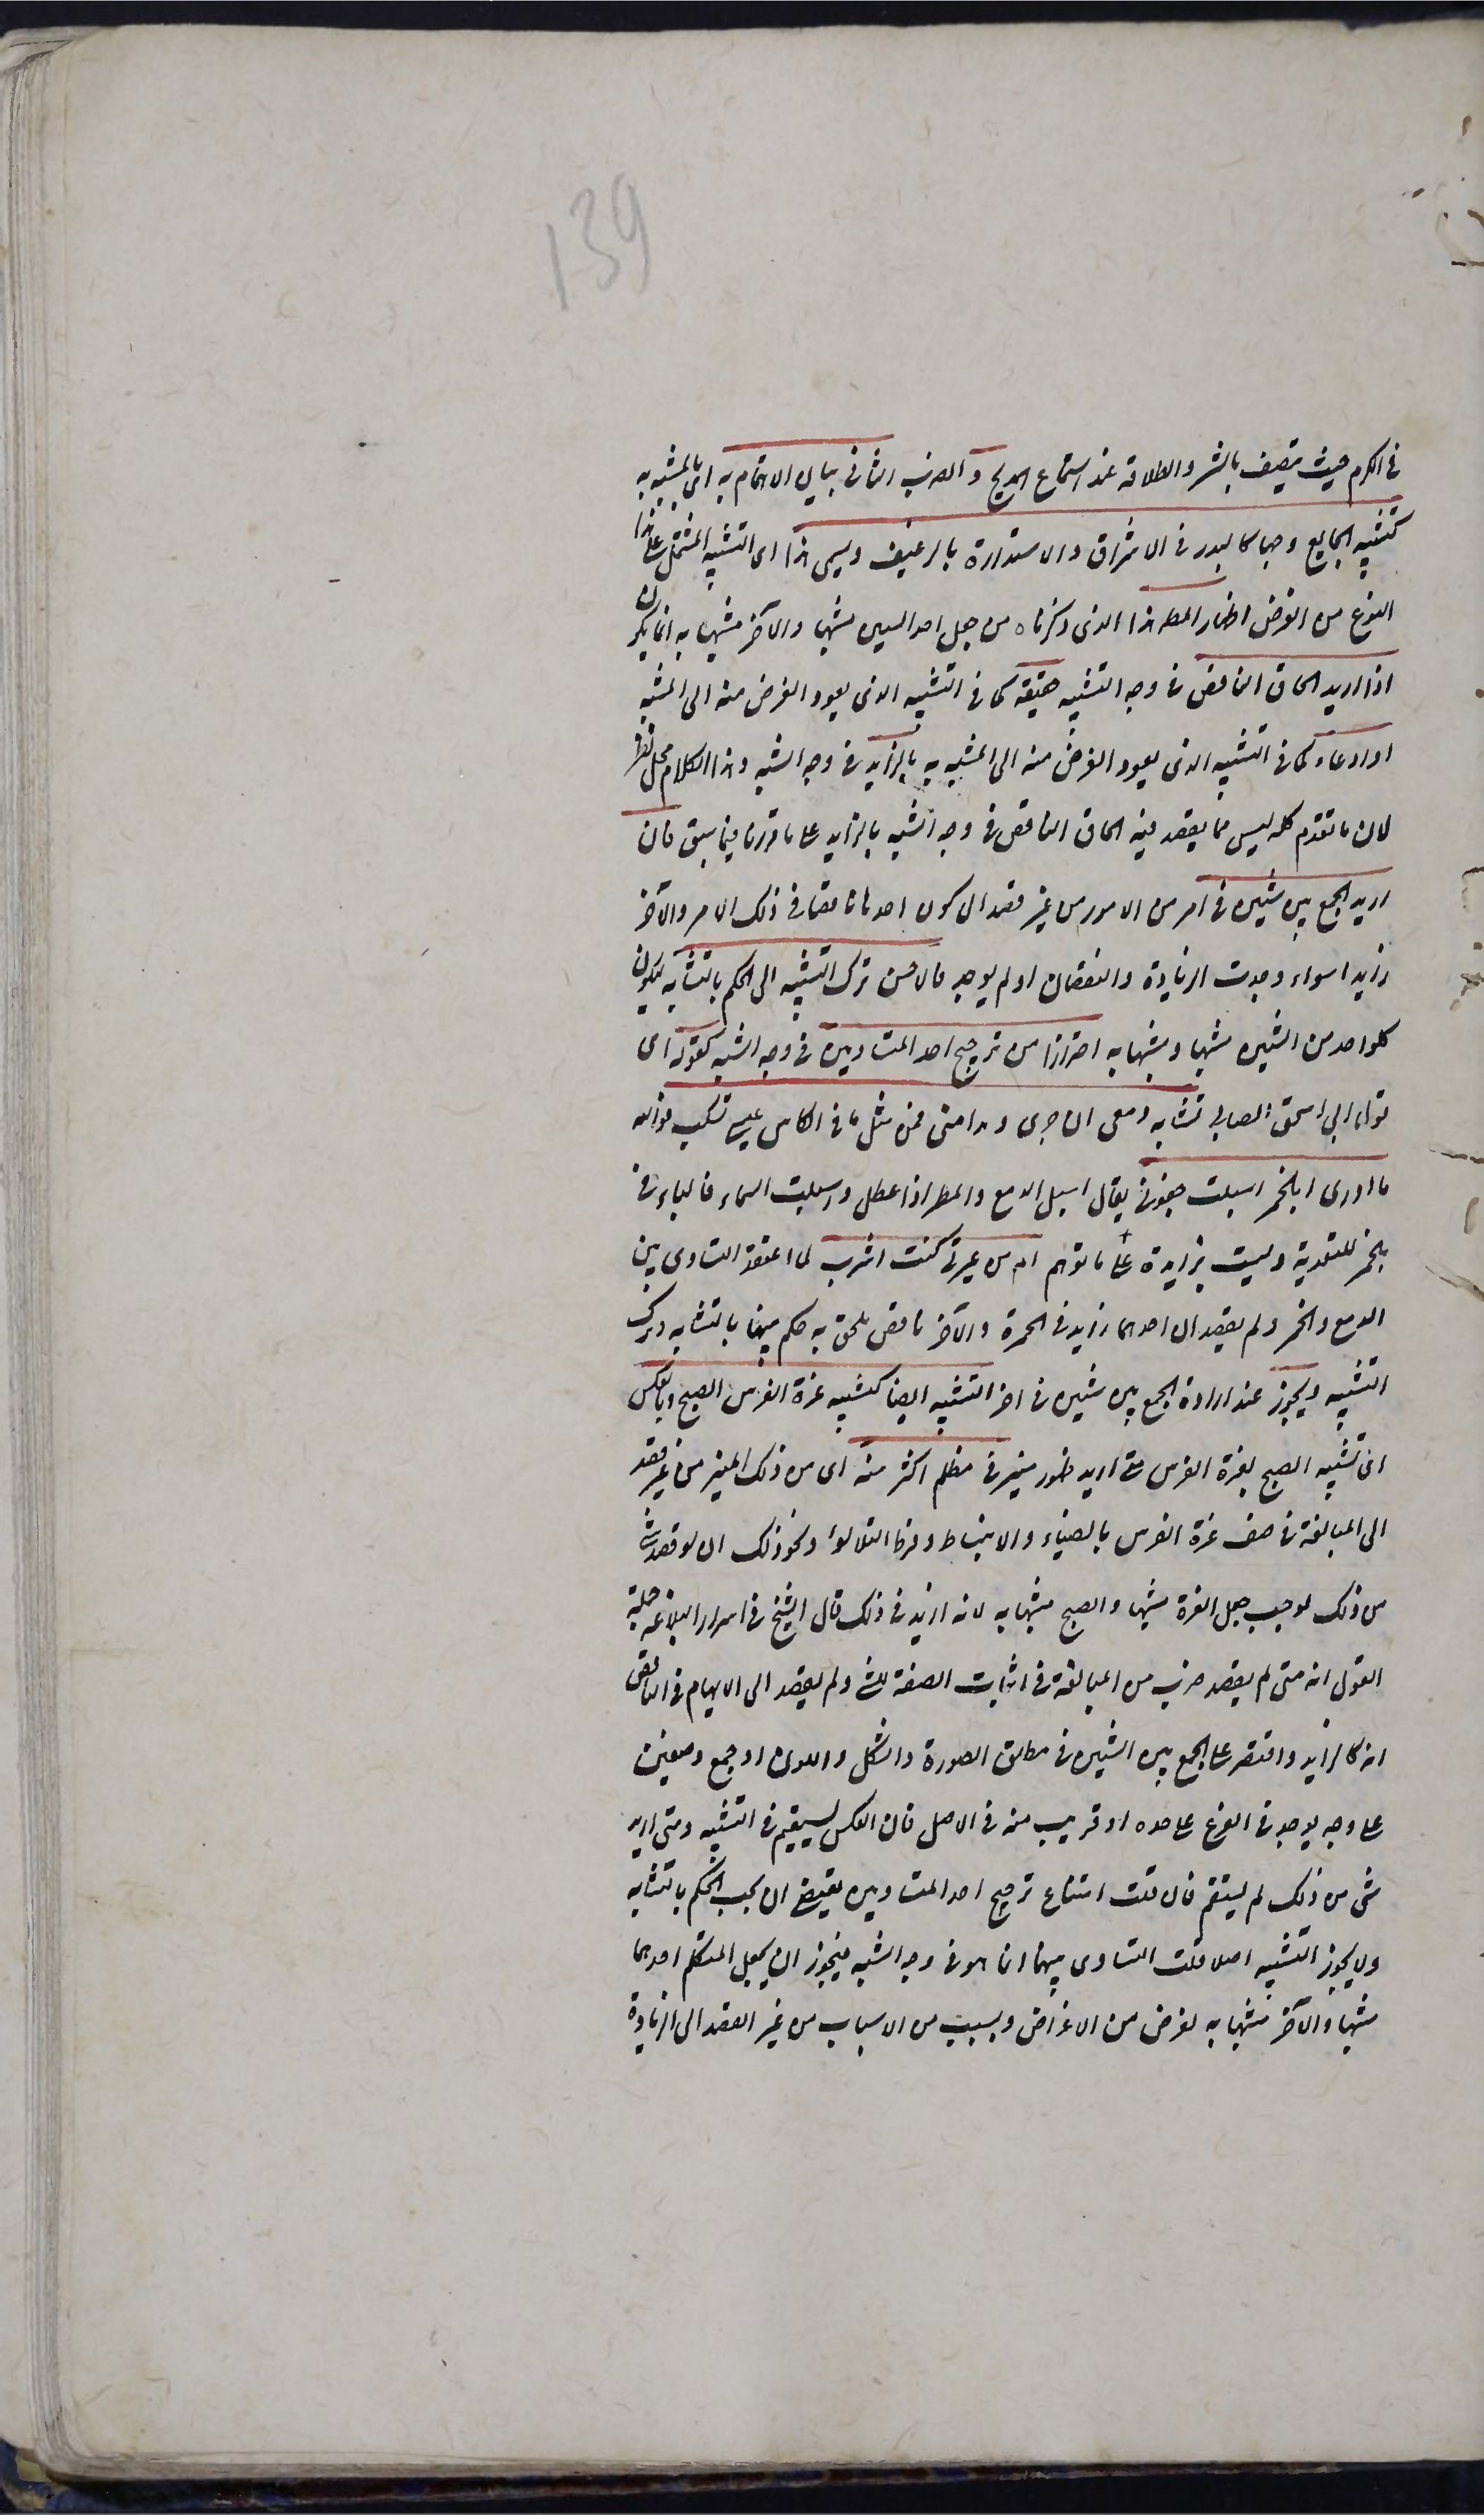 139
في الكرم حيث يتصف بالبشر والطلاقة عند استماع المديح و الضرب الثاني بيان الاهتمام به اى بالمشبه به
كتشبيه الجايع وجها كالبدر في الاشراق والاستدارة بالرغيف ويسمى هذا اى التشبيه المشتمل على هذا
النوع من الغرض اظهار المط هذا الذى ذكرناه من جعل احد الشيئين مشبها والاخر مشبها به انما يكون
اذا اريد الحاق الناقص في وجه التشبيه حقيقة كما في التشبيه الذى يعود الغرض منه الى المشبه
او ادعاء كما في التشبيه الذى يعود الغرض منه الى المشبه به بالزايد في وجه الشبه وهذا الكلام محل نظر
لان ما تقدم كله ليس مما يقصد فيه الحاق الناقص في وجه الشبه بالزايد على ما قررنا فيما سبق فان
اريد الجمع بين شيئين في امر من الامور من غير قصد الى كون احدهما ناقصا في ذلك الامر والآخر
زايدا سواء وجدت الزيادة والنقصان او لم يوجد فالاحسن ترك التشبيه الى الحكم بالتشابه ليكون
كلواحد من الشيئين مشبها ومشبها به احترازا من ترجيح احد المتساويين في وجه الشبه كقوله اى
قول ابي اسحق الصابي تشابه دمعى اذ جرى ومدامتى فمن مثل ما في الكاس عينى تسكب فوالله
ما ادرى ابالخمر اسبلت جفونى يقال اسبل الدمع والمطر اذا هطل واسبلت السماء فالباء في
بالخمر للتعدية وليست بزايدة على ما توهم ام من عبرتى كنت اشرب لما اعتقد التساوى بين
الدمع والخمر ولم يقصد ان احدهما زايد في الحمرة والآخر ناقص يلحق به حكم بينهما بالتشابه وترك
التشبيه ويجوز عند ارادة الجمع بين شيئين في امر التشبيه ايضا كتشبيه غرة الفرس بالصبح وبالعكس
اى تشبيه الصبح بغرة الفرس متى اريد ظهور منير في مظلم اكثر منه اى من ذلك المنير من غير قصد
الى المبالغة في وصف غرة الفرس بالضياء والانبساط وفرط التلالؤ ونحو ذلك اذ لو قصد شئ
من ذلك لوجب جعل الغرة مشبها والصبح مشبها به لانه ازيد في ذلك قال الشيخ في اسرار البلاغة جملة
القول انه متى لم يقصد ضرب من المبالغة في اثبات الصفة للشئ ولم يقصد الى الايهام في الناقص
انه كالزايد واقتصر على الجمع بين الشيئين في مطلق الصورة والشكل واللون او جمع وصفين
على وجه يوجد في الفرع على حده او قريب منه في الاصل فان العكس يستقيم في التشبيه ومتى اريد
شئ من ذلك لم يستقم فان قلت امتناع ترجيح احد المتساويين يقتضى ان يجب الحكم بالتشابه
ولا يجوز التشبيه اصلا قلت التساوى بينهما انما هو في وجه الشبه فيجوز ان يجعل المتكلم احدهما
مشبها والآخر مشبها به لغرض من الاغراض وبسبب من الاسباب من غير القصد الى الزيادة